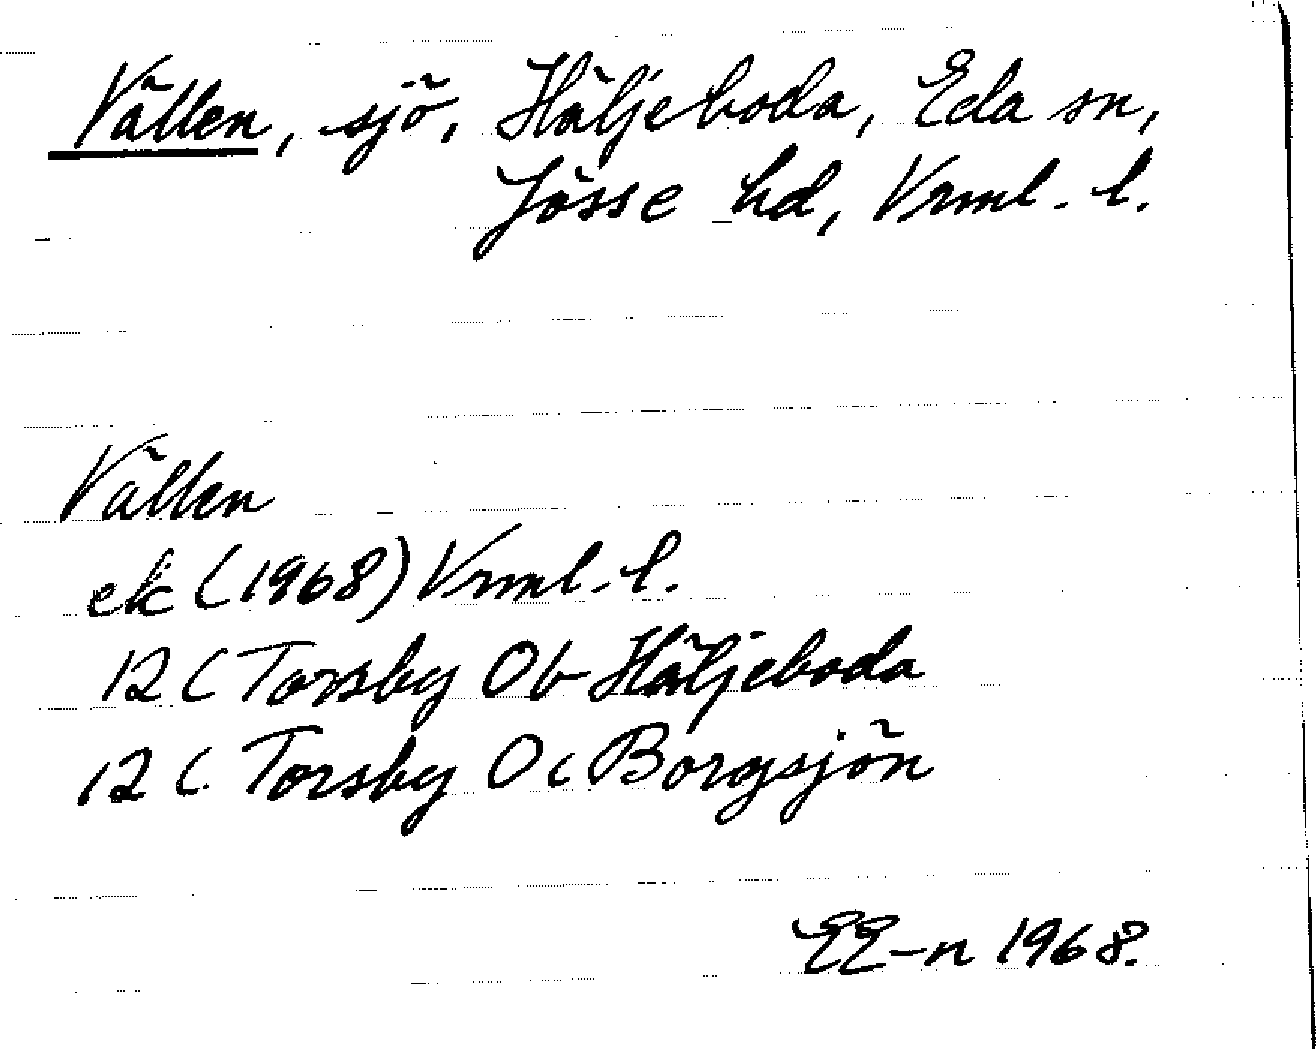 Vällen, sjö, Häljeboda, Eda sn,
Jösse hd, Vrml. l.
Vällen
ek (1968) Vrml. l.
12 C Torsby 0b Häljeboda
12 C Torsby 0c Borgsjön
EE-n 1968.